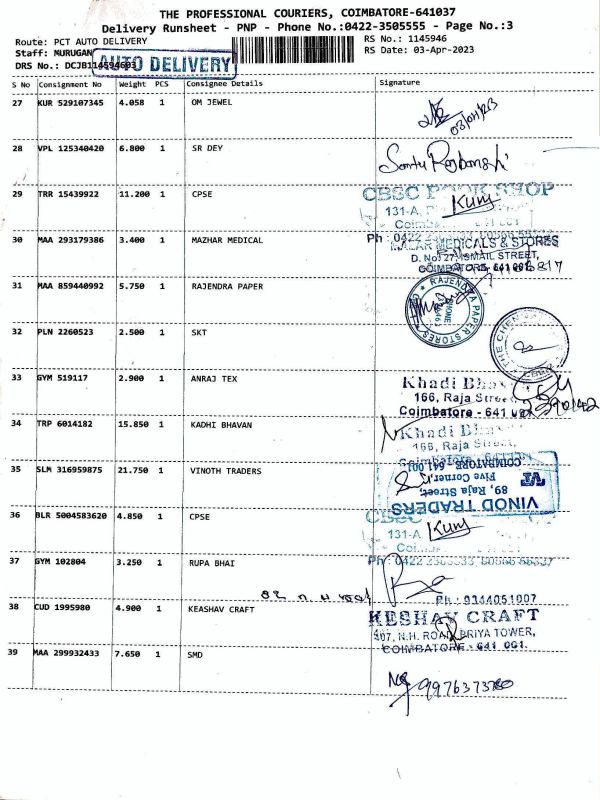 THE PROFESSIONAL COURIERS, COIMBATORE-641037
Delivery Runsheet - PNP - Phone No.:0422-3505555 - Page No.:3
Route: PCT AUTO DELIVERY RS No.: 1145946
Staff: MURUGAN RS Date: 03-Apr-2023
DRS No.: DCJB114594603
AUTO DELIVERY
S No Consignment No Weight PCS Consignee Details Signature
27 KUR 529107345 4.058 1 OM JEWEL
28 VPL 125340420 6.800 1 SR DEY
29 TRR 15439922 11.200 1 CPSE
CBSC BOOK SHOP
Kum
131-A,
30 MAA 293179386 3.400 1 MAZHAR MEDICAL
MAZAR MEDICALS & STORES
D. No: 27, ISMAIL STREET,
COIMBATORE- 641 001.
31 MAA 859440992 5.750 1 RAJENDRA PAPER
RAJENDRA PAPER STORES
32 PLN 2260523 2.500 1 SKT
33 GYM 519117 2.900 1 ANRAJ TEX
Khadi Bhav
166, Raja Street,
Coimbatore - 641 001
34 TRP 6014182 15.850 1 KADHI BHAVAN
Khadi Bha
166, Raja Street,
35 SLM 316959875 21.750 1 VINOTH TRADERS
VINOD TRADERS
89, Raja Street,
Five Corner,
COIMBATORE - 641 001.
36 BLR 5004583620 4.850 1 CPSE
CBSC
Kum
131-A
37 GYM 102804 3.250 1 RUPA BHAI
Ph : 9344051007
38 CUD 1995980 4.900 1 KEASHAV CRAFT
KESHAV CRAFT
407, N.H. ROAD, PRIYA TOWER,
COIMBATORE - 641 001.
39 MAA 299932433 7.650 1 SMD